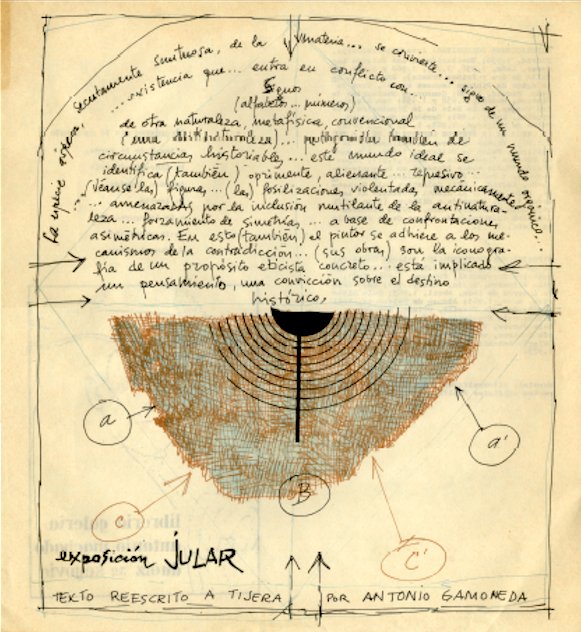 La especie secretamente suntuosa, de la materia... se convierte... signo de un mundo orgánico...
...existencia que... entra en conflicto con...
Signos
(alfabetos... números)
de otra naturaleza, metafísica, convencional
(una antinaturaleza)... protagonista también de
circunstancias historiables... este mundo ideal se
identifica (también) oprimente, alienante... represivo...
(Véanse las) figuras... (las) fosilizaciones violentadas, mecánicamente
... amenazadas por la inclusión mutilante de la antinatura-
leza... forzamiento de simetrías... a base de confrontaciones
asimétricas. En esto (también) el pintor se adhiere a los me-
canismos de la contradicción... (sus obras) son la iconogra-
fía de un propósito eticista concreto... está implicado
un pensamiento, una convicción sobre el destino
histórico.
a
a'
B
c
C'
exposición JULAR
TEXTO REESCRITO A TIJERA POR ANTONIO GAMONEDA